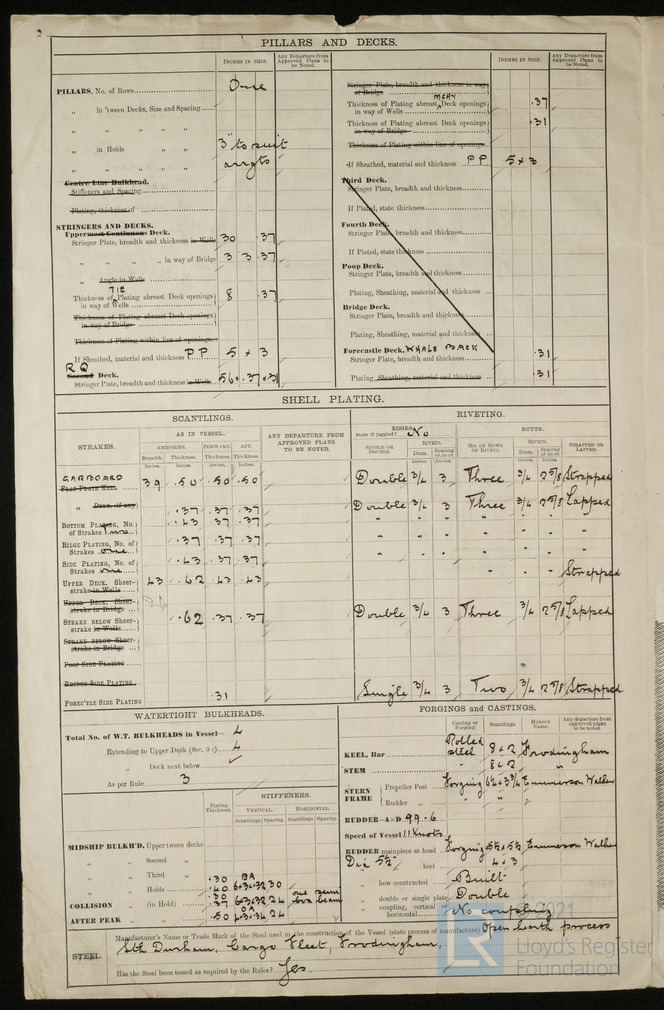 PILLARS AND DECKS.
INCHES IN SHIP.
Any Departure from Approved Plans to be Noted.
PILLARS, No. of Rows
One
„ in 'tween Decks, Size and Spacing
„ „ „ „
„ in Holds „ „
3" to suit
„ „ „ „
arrgts
Centre Line Bulkhead.
Stiffeners and Spacing
Plating, thickness of
STRINGERS AND DECKS.
Uppermost Continuous Deck.
Stringer Plate, breadth and thickness in Wells
30 .37
„ „ „ „ in way of Bridge
3 3 .37
„ Angle in Wells
TIE
Thickness of Plating abreast Deck openings in way of Wells
8 .37
Thickness of Plating abreast Deck openings in way of Bridge
Thickness of Plating within line of openings
If Sheathed, material and thickness PP
5 x 3
RQ
Second Deck.
Stringer Plate, breadth and thickness in Wells
INCHES IN SHIP.
Any Departure from Approved Plans to be Noted.
Stringer Plate, breadth and thickness in way of Bridge
Thickness of Plating abreast Deck openings in way of Wells
.37
Thickness of Plating abreast Deck openings in way of Bridge
.31
Thickness of Plating within line of openings
If Sheathed, material and thickness PP
5 x 3
Third Deck.
Stringer Plate, breadth and thickness
If Plated, state thickness
Fourth Deck.
Stringer Plate, breadth and thickness
If Plated, state thickness
Poop Deck.
Stringer Plate, breadth and thickness
Plating, Sheathing, material and thickness
Bridge Deck.
Stringer Plate, breadth and thickness
Plating, Sheathing, material and thickness
Forecastle Deck, WHALE BACK
Stringer Plate, breadth and thickness
.31
Plating, Sheathing, material and thickness
.31
SHELL PLATING.
SCANTLINGS.
RIVETING.
STRAKES.
AS IN VESSEL.
ANY DEPARTURE FROM APPROVED PLANS TO BE NOTED.
EDGES.
State if joggled? No
BUTTS.
AMIDSHIPS. FORWARD. AFT.
Breadth. Thickness. Thickness. Thickness.
Inches. Inches. Inches. Inches.
SINGLE OR DOUBLE.
RIVETS.
Diam. Spacing cr. to cr.
No. OF ROWS OF RIVETS.
RIVETS.
Diam. Spacing cr. to cr.
STRAPPED OR LAPPED.
GARBOARD
Flat Plate Keel
39 .50 .50 .50
Double 3/4 3 Three 3/4 2 5/8 Strapped
„ Dblg. (if any)
.37 .37 .37
Double 3/4 3 Three 3/4 2 5/8 Lapped
BOTTOM PLATING, No. of Strakes
.43 .37 .37
BILGE PLATING, No. of Strakes
.37 .37 .37
SIDE PLATING, No. of Strakes
.43 .37 .37
UPPER DECK, Sheerstrake in Wells
43 .62 .43 .43
Strapped
UPPER DECK, Sheerstrake in Bridge
STRAKE BELOW Sheerstrake in Wells
.62 .37 .37
Double 3/4 3 Three 3/4 2 5/8 Lapped
STRAKE BELOW Sheerstrake in Bridge
POOP SIDE PLATING
BRIDGE SIDE PLATING
FORECTLE SIDE PLATING
.31
Single 3/4 3 Two 3/4 2 5/8 Strapped
WATERTIGHT BULKHEADS.
Total No. of W.T. BULKHEADS in Vessel—
4
Extending to Upper Deck (Sec. 3 c)
4
„ Deck next below
✓
As per Rule
3
Plating Thickness.
STIFFENERS.
VERTICAL. HORIZONTAL.
Scantlings. Spacing. Scantlings. Spacing.
MIDSHIP BULKH'D, Upper tween decks
„ „ Second „
„ „ Third „
„ „ Holds
COLLISION „ (in Hold)
AFTER PEAK „ „
FORGINGS and CASTINGS.
Casting or Forging.
Scantlings.
Maker's Name.
Any departure from approved plans to be noted.
KEEL, Bar
Rolled steel 8 x 2 Frodingham
STEM
„ 8 x 2 „
STERN FRAME
Propeller Post
Forging
Rudder „
„ „ „
RUDDER—A×D 99.6
Speed of Vessel 11 Knots
RUDDER mainpiece at head
Forging
Dia 5½"
„ „ heel
4 . 3
„ how constructed
Built
„ double or single plate
Double
„ coupling, vertical or horizontal
No coupling
STEEL.
Manufacturer's Name or Trade Mark of the Steel used in the construction of the Vessel (state process of manufacture) Open hearth process
Sth Durham, Cargo Fleet, Frodingham.
Has the Steel been tested as required by the Rules? Yes.
2021
LR
Lloyd's Register
Foundation